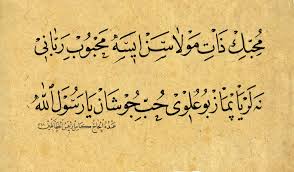 محبّك ذات مولا سز ايسه محبوب ربّانى
نه لر ياپماز بو علوى حبّ جوشان يا رسول اللّٰه